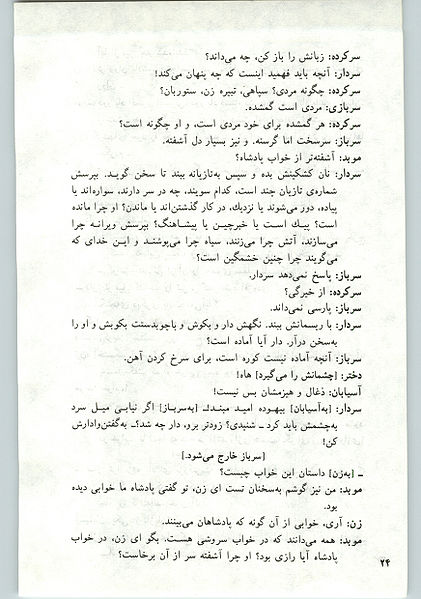 سرکرده: زبانش را باز کن، چه می‌داند؟
سردار: آنچه باید فهمید اینست که چه پنهان می‌کند!
سرکرده: چگونه مردی؟ سپاهی، تبیره زن، ستوربان؟
سربازی: مردی است گمشده.
سرکرده: هر گمشده برای خود مردی است، و او چگونه است؟
سرباز: سرسخت اما گرسنه. و نیز بسیار دل آشفته.
موبد: آشفته‌تر از خواب پادشاه؟
سردار: نان کشکینش بده و سپس به‌تازیانه ببند تا سخن گوید. بپرسش
شماره‌ی تازیان چند است، کدام سویند، چه در سر دارند، سواره‌اند یا
پیاده، دور می‌شوند یا نزدیک، در کار گذشتن‌اند یا ماندن؟ او چرا مانده
است؟ پیک است یا خبرچین یا پیشاهنگ؟ بپرسش ویرانه چرا
می‌سازند، آتش چرا می‌زنند، سیاه چرا می‌پوشند و این خدای که
می‌گویند چرا چنین خشمگین است؟
سرباز: پاسخ نمی‌دهد سردار.
سرکرده: از خیرگی؟
سرباز: پارسی نمی‌داند.
سردار: با ریسمانش ببند. نگهش دار و بکوش و باچوبدست بکوبش و او را
به‌سخن درآر. دار آیا آماده است؟
سرباز: آنچه آماده نیست کوره است، برای سرخ کردن آهن.
دختر: [چشمانش را می‌گیرد] هاه!
آسیابان: ذغال و هیزمشان بس نیست!
سردار: [به‌آسیابان] بیهوده امید مبند ـ [به‌سرباز] اگر نیابی میل سرد
به‌چشمش باید کرد ـ شنیدی؟ زودتر برو، دار چه شد؟ـ به‌گفتن‌وادارش
کن!
[سرباز خارج می‌شود.]
ـ [به‌زن] داستان این خواب چیست؟
موبد: من نیز گوشم به‌سخنان تست ای زن، تو گفتی پادشاه ما خوابی دیده
بود.
زن: آری، خوابی از آن گونه که پادشاهان می‌بینند.
موبد: همه می‌دانند که در خواب سروشی هست. بگو ای زن، در خواب
پادشاه آیا رازی بود؟ او چرا آشفته سر از آن برخاست؟
۲۴